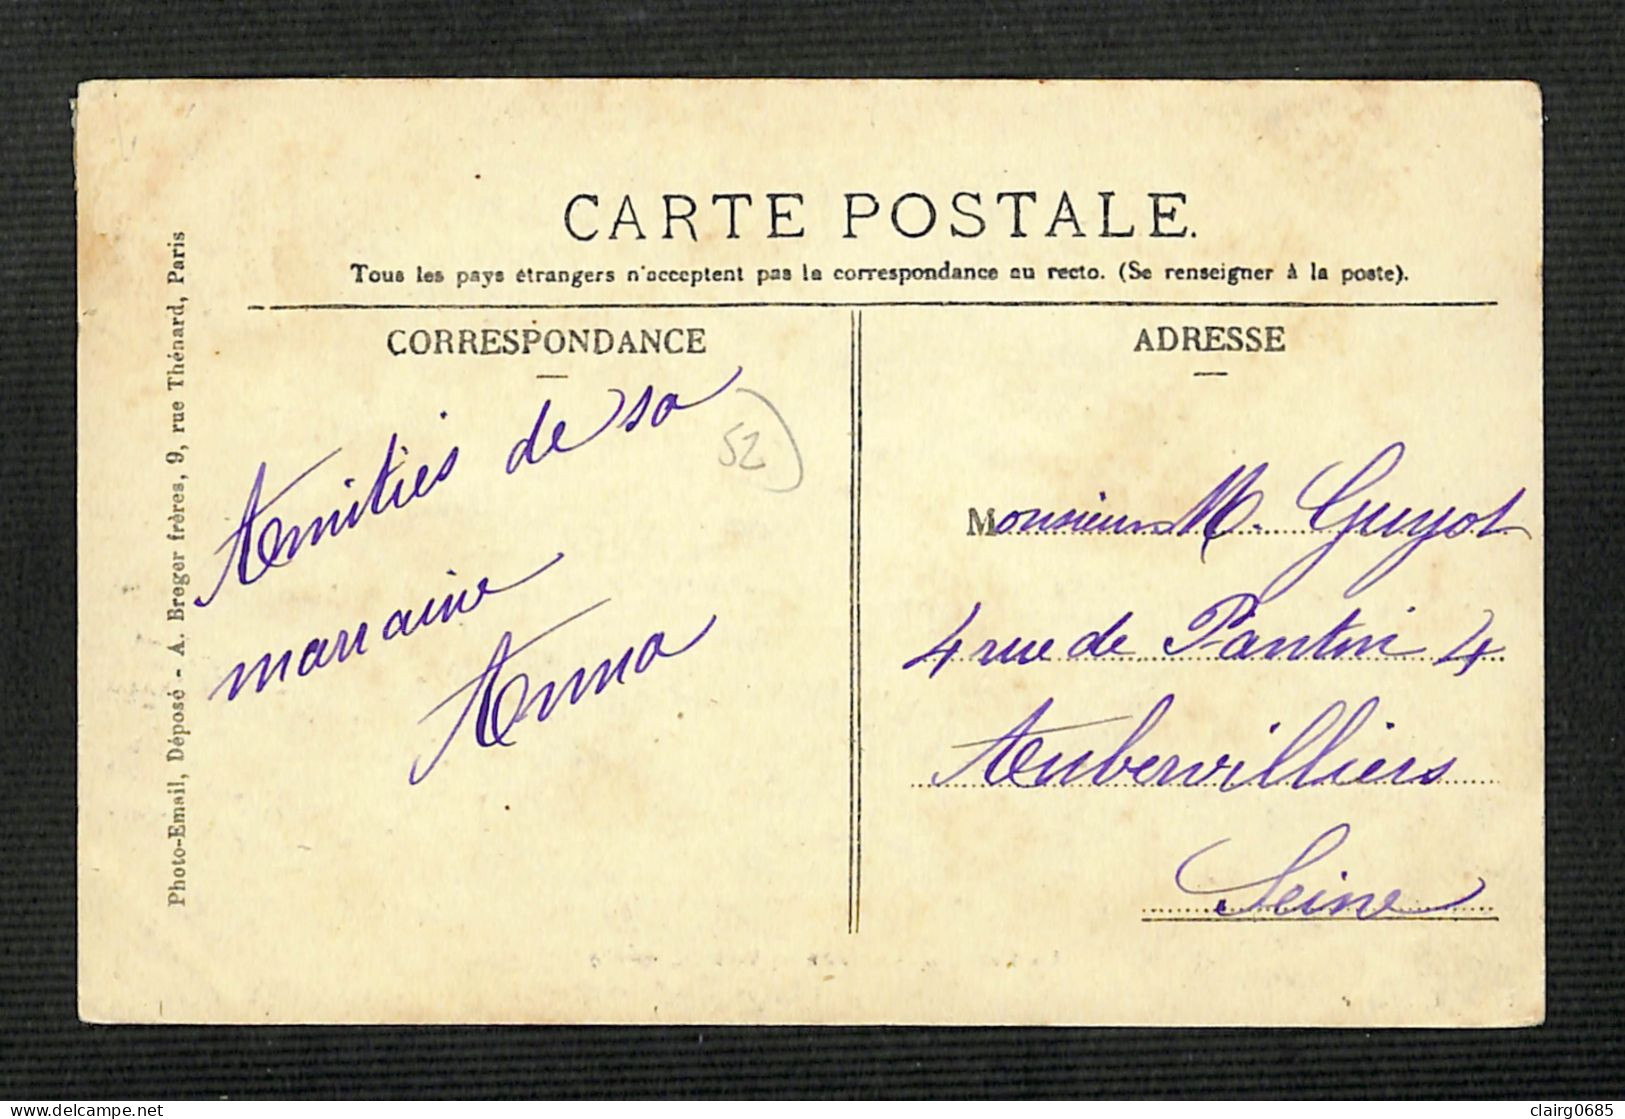 CARTE POSTALE.
Tous les pays étrangers n'acceptent pas la correspondance au recto. (Se renseigner à la poste).
CORRESPONDANCE
Amitiés de sa
marraine
Anna
52
ADRESSE
Monsieur M. Guyot
4 rue de Pantin 4
Aubervilliers
Seine
Photo-Email, Déposé - A. Breger frères, 9, rue Thénard, Paris
delcampe.net
clairg0685